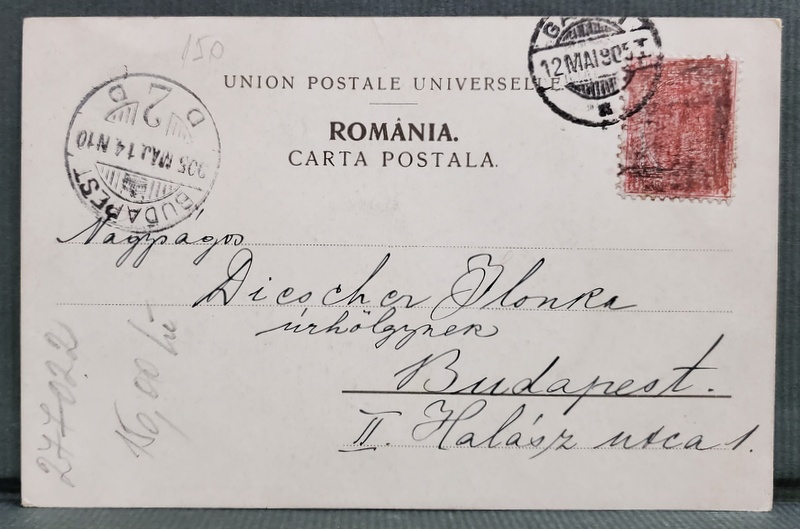 150
UNION POSTALE UNIVERSELLE
12 MAI 905
ROMÂNIA.
CARTA POSTALA.
BUDAPEST
905 MÁJ. 14 N10
2 D
D
Nagyságos
Diescher Ilonka
úrhölgynek
Budapest.
II. Halász utca 1.
277022